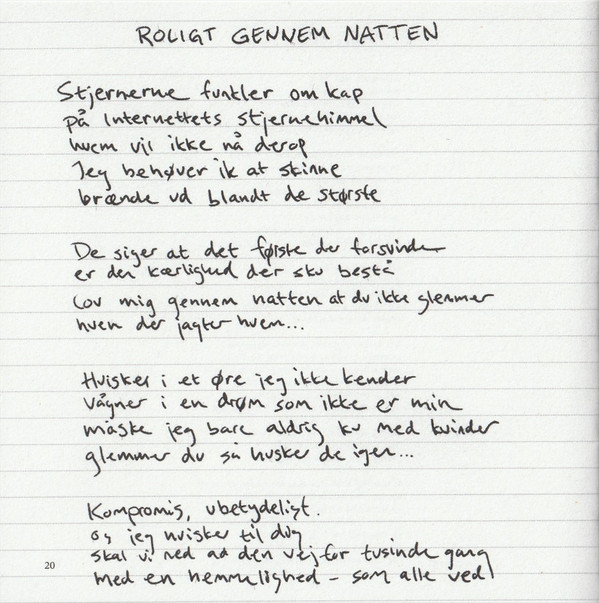 ROLIGT GENNEM NATTEN
Stjernerne funkler om kap
på Internettets stjernehimmel
hvem vil ikke nå derop
Jeg behøver ik at skinne
brænde ud blandt de største
De siger at det første der forsvinder
er den kærlighed der sku bestå
Lov mig gennem natten at du ikke glemmer
hvem der jagter hvem...
Hvisker i et øre jeg ikke kender
Vågner i en drøm som ikke er min
måske jeg bare aldrig ku med kvinder
glemmer du så husker de igen...
Kompromis, ubetydeligt.
og jeg hvisker til dig
skal vi ned ad den vej for tusinde gang
20
med en hemmelighed - som alle ved